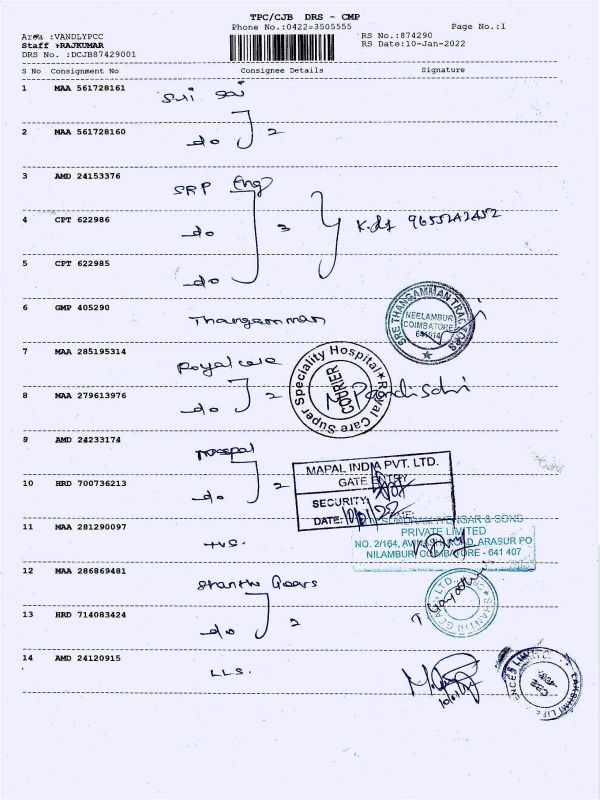 TPC/CJB DRS - CMP
Phone No.:0422=3505555
Page No.:1
Area :VANDLYPCC
Staff :RAJKUMAR
DRS No. :DCJB87429001
RS No.:874290
RS Date:10-Jan-2022
S No Consignment No Consignee Details Signature
1 MAA 561728161 Sri Sai
2 MAA 561728160 do 2
3 AMD 24153376 SRP Eng
4 CPT 622986 do 3 9655242452
5 CPT 622985 do
6 GMP 405290 Thangamman
SRS THANGAMMAN TRADERS
NEELAMBUR
COIMBATORE
641014
7 MAA 285195314 Royal care
Royal Care Super Speciality Hospital
COURIER
8 MAA 279613976 do 2
9 AMD 24233174
MAPAL INDIA PVT. LTD.
GATE ENTRY
SECURITY:
DATE: 10/01/22
10 HRD 700736213 do 2
11 MAA 281290097 TVS.
IYENGAR & SONS
PRIVATE LIMITED
NO. 2/164, ROAD, ARASUR PO
NILAMBUR, COIMBATORE - 641 407
12 MAA 286869481 Shanthi Gears
SHANTHI GEARS LTD.
13 HRD 714083424 do 2
14 AMD 24120915 LLS.